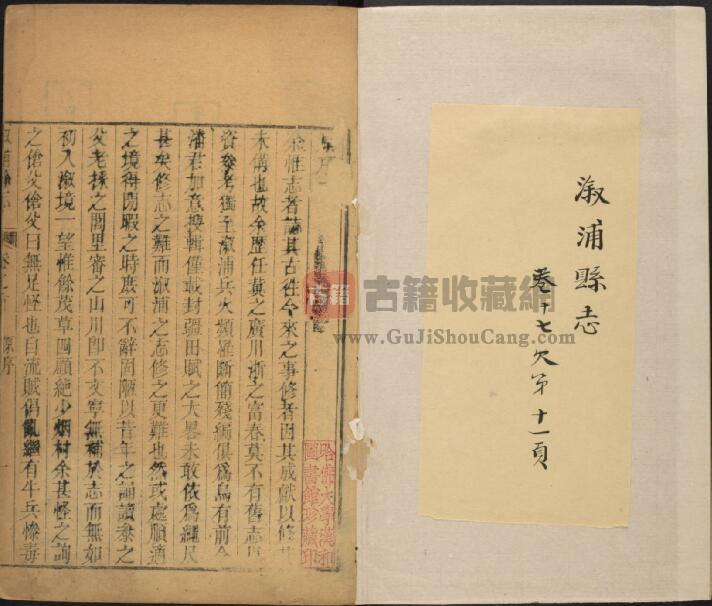 溆浦縣志
卷十七欠第十一頁
古籍 古籍收藏網
www.GuJiShouCang.com
哈佛大學漢和
圖書館珍藏印
原序
余惟志者誌其古往今來之事修者因其成獻以修
未備也故余歷任黃之廣川浙之富春莫不有舊志
資參考獨至溆浦兵火頻罹斷簡殘編俱爲烏有前令
潘君加意搜輯僅載封疆田賦之大畧未敢依爲繩尺
甚矣修志之難而溆浦之志修之更難也然或處順適
之境得閒暇之時庶可不辭固陋以昔年之誦讀叅之
父老揆之閭里審之山川卽不文寧無補於志而無如
初入溆境一望惟餘茂草四顧絕少烟村余甚怪之詢
之傖父傖父曰無足怪也自流賊倡亂繼有牛兵慘毒
溆浦縣志 卷之首 原序